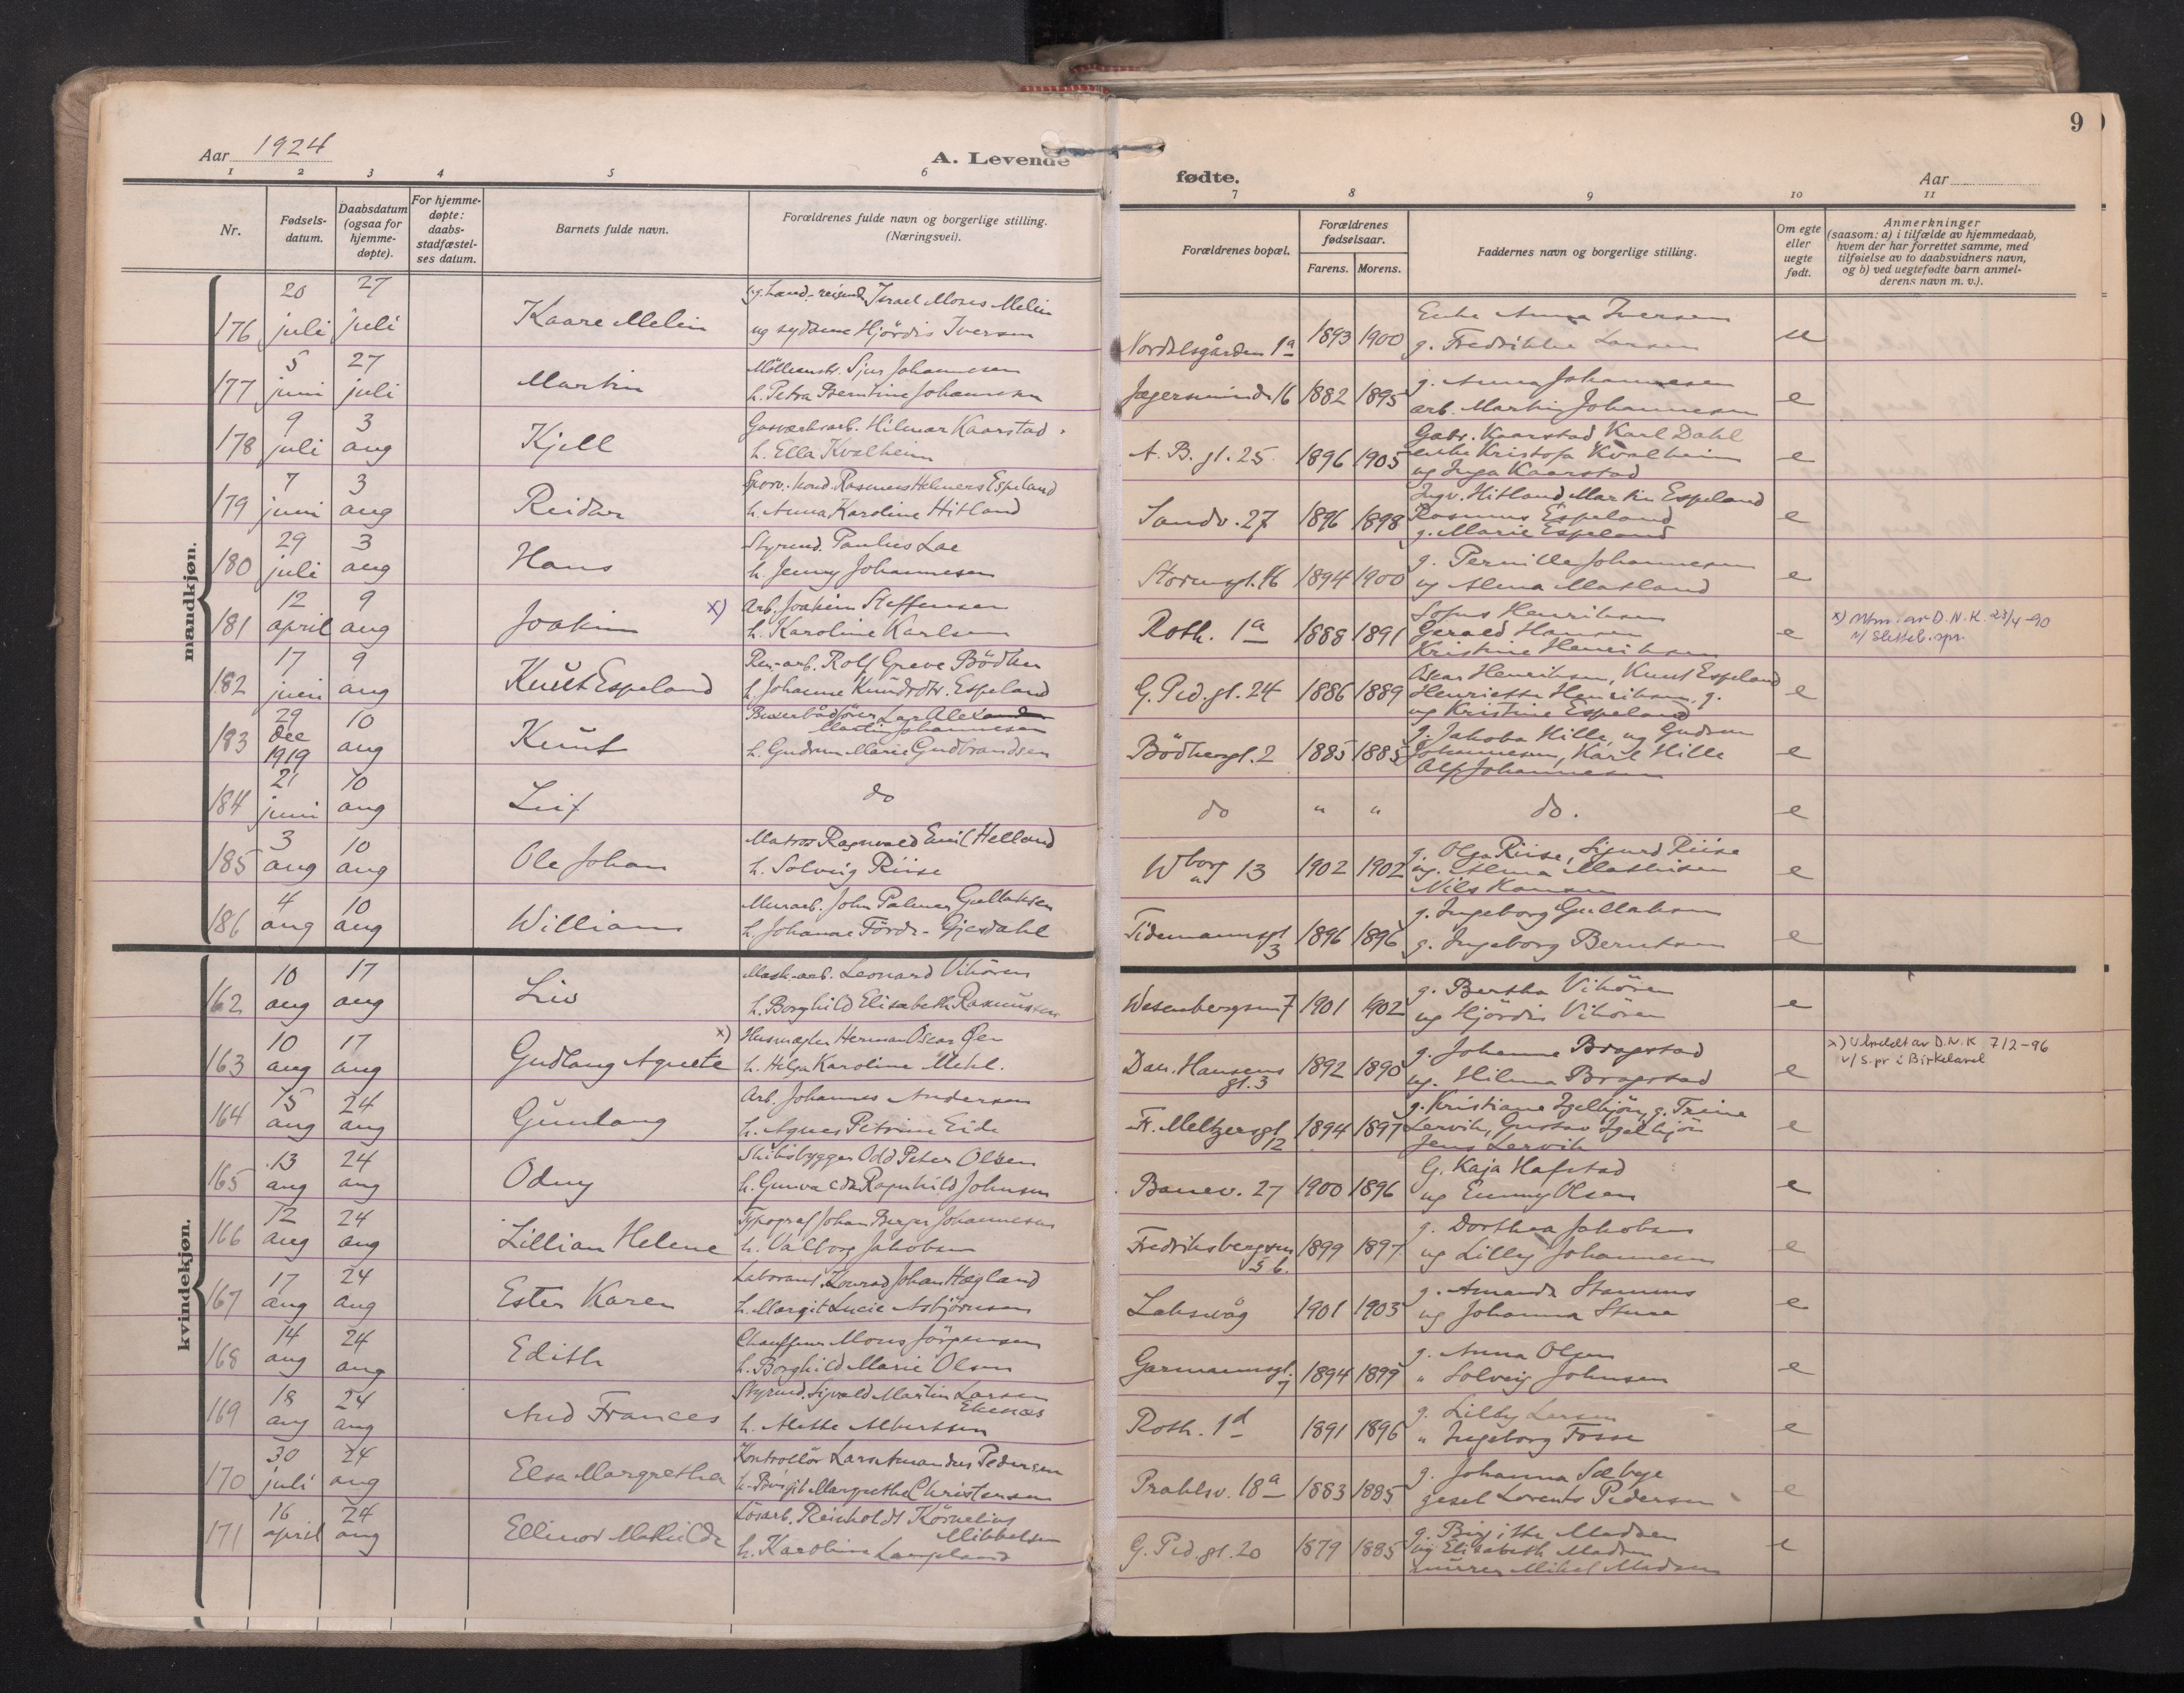 Aar 1924
A. Levende
fødte.
Aar
9
1 2 3 4 5 6 7 8 9 10 11
Nr.
Fødsels-
datum.
Daabsdatum
(ogsaa for
hjemme-
døpte).
For hjemme-
døpte:
daabs-
stadfæstel-
ses datum.
Barnets fulde navn.
Forældrenes fulde navn og borgerlige stilling.
(Næringsvei).
Forældrenes bopæl.
Forældrenes
fødselsaar.
Farens. Morens.
Faddernes navn og borgerlige stilling.
Om egte
eller
uegte
født.
Anmerkninger
(saasom: a) i tilfælde av hjemmedaab,
hvem der har forrettet samme, med
tilføielse av to daabsvidners navn,
og b) ved uegtefødte barn anmel-
derens navn m. v.).
mandkjøn.
176 20 juli 27 juli Kaare Melin Israel Moses Melin
og sydame Hjördis Iversen
Nordalsgården 1a 1893 1900 Enke Anna Iversen
g. Fredrikke Larsen
177 5 juni 27 juli Martin Sjur Johannesen
h. Petra Berntine Johannesen
16 1882 1895 g. Anna Johannesen
arb. Martin Johannesen e
178 9 juli 3 aug Kjell Gasverksarb. Hilmar Kaarstad
h. Ella Kvalheim
A. B. gt. 25 1896 1905 Gabr. Kaarstad Karl Dahl
enke Kristofa Kvalheim
og Inga Kaarstad e
179 7 juni 3 aug Reidar Rasmus Helmers Espeland
h. Anna Karoline Hitland
Sandv. 27 1896 1898 Ingv. Hitland, Martin Espeland
Rasmus Espeland
g. Marie Espeland e
180 29 juli 3 aug Hans Styrmd. Paulus Lae
h. Jenny Johannesen
Stormgt. 16 1894 1900 g. Pernille Johannesen
og Alma Matland e
181 12 april 9 aug Joakim x) Arb. Joakim Steffensen
h. Karoline Karlsen
Roth. 1a 1888 1891 Sofus Henriksen
Gerald Hansen
Kristine Henriksen e
x) Utm. av D. N. K. 23/4-90
v/ Sletteb. spr.
182 17 juni 9 aug Knut Espeland Ren.-arb. Rolf Greve Bödker
h. Johanne Knudsdtr. Espeland
G. Ped. gt. 24 1886 1889 Oscar Henriksen, Knut Espeland
Henriette Henriksen, g.
og Kristine Espeland e
183 29 dec 1919 10 aug Knut
Martin Johannesen
h. Gudrun Marie Gudbrandsen
Bödkergt. 2 1885 1885 g. Jakoba Hille, og Gudrun
Johannesen, Karl Hille
Alf Johannesen e
184 21 juni 10 aug Leif do
do " " do. e
185 3 aug 10 aug Ole Johan Matros Ragnvald Emil Helland
h. Solveig Riise
Wborg 13 1902 1902 g. Olga Riise, Sigurd Riise
ug. Alma Mathisen
Nils Hansen e
186 4 aug 10 aug William Murarb. John Palmer Gullaksen
h. Johanne Förde-Gjesdahl
Tidemannsgt 3 1896 1896 g. Ingeborg Gullaksen
g. Ingeborg Berntsen e
kvindekjøn.
162 10 aug 17 aug Liv Mask-arb. Leonard Vihören
h. Borghild Elisabeth Rasmussen
Wesenbergsm 7 1901 1902 g. Bertha Vihören
ug Hjördis Vihören e
163 10 aug 17 aug Gudlaug Agnete x) Husmægler Herman Oscar Øen
h. Helga Karoline Mehl.
Dan. Hansens gt. 3 1892 1890 g. Johanne Bragstad
ug. Hilma Bragstad e
x) Utmeldt av D. N. K. 7/2-96
v/ s.pr i Birkeland
164 15 aug 24 aug Gunlaug Arb. Johannes Andersen
h. Agnes Petrine Eide
Fr. Meltzersgt 12 1894 1897 g. Kristiane Igelkjön, g. Trine
Lervik, Gustav Igelkjön
Jens Lervik e
165 13 aug 24 aug Odny Skibsbygger Odd Peter Olsen
Ragnhild Johnsen
Banev. 27 1900 1896 G. Kaja Hafstad
ug Emmy Olsen e
166 12 aug 24 aug Lillian Helene Typograf Johan Berger Johannesen
h. Valborg Jakobsen
Fredriksbergsm 5 b. 1899 1897 g. Dorthea Jakobsen
ug Lilly Johannesen e
167 17 aug 24 aug Ester Karen Laborant Konrad Johan Hægland
h. Margit Lucie Asbjörnsen
Laksevåg 1901 1903 g. Amanda
ug Johanna e
168 14 aug 24 aug Edith Chauffeur Mons Jörgensen
h. Borghild Marie Olsen
Garmannsgt. 7 1894 1899 g. Anna Olsen
" Solveig Johnsen e
169 18 aug 24 aug Aud Frances Styrmd. Sigvald Martin Larsen
Ekenæs
h. Alette Albertsen
Roth. 1d 1891 1896 g. Lilly Larsen
" Ingeborg Fosse e
170 30 juli 24 aug Elsa Margretha Kontrollör Lars Amandus Pedersen
h. Birgit Margrethe Christensen
Prahlsv. 18a 1883 1885 g. Johanna Sæbye
gesel Lorents Pedersen e
171 16 april 24 aug Ellinor Mathilde Lösarb. Reinholdt Kornelius
Mikkelsen
h. Karoline Langeland
G. Ped. gt. 20 1879 1885 g. Birgitte Madsen
ug Elisabeth Madsen
murer Mikal Madsen e